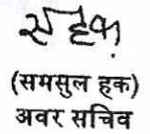 स हक
(समसुल हक)
अवर सचिव